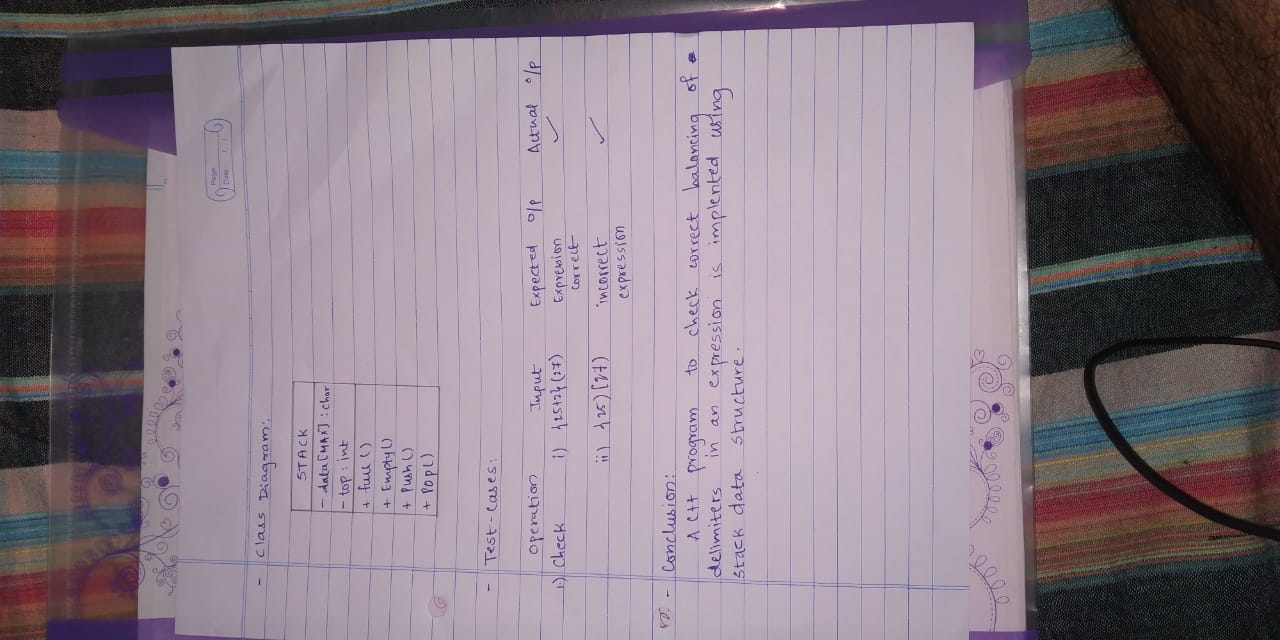 Page
Date / /
- Class Diagram:
STACK
- data[MAX] : char
- top : int
+ full ()
+ Empty()
+ Push ()
+ Pop()
- Test-cases:
Operation Input Expected o/p Actual o/p
1.) Check i) {25+2} (27) Expression ✓
correct
ii) {25) [27) incorrect ✓
expression
- Conclusion:
A C++ program to check correct balancing of
delimiters in an expression is implented using
stack data structure.